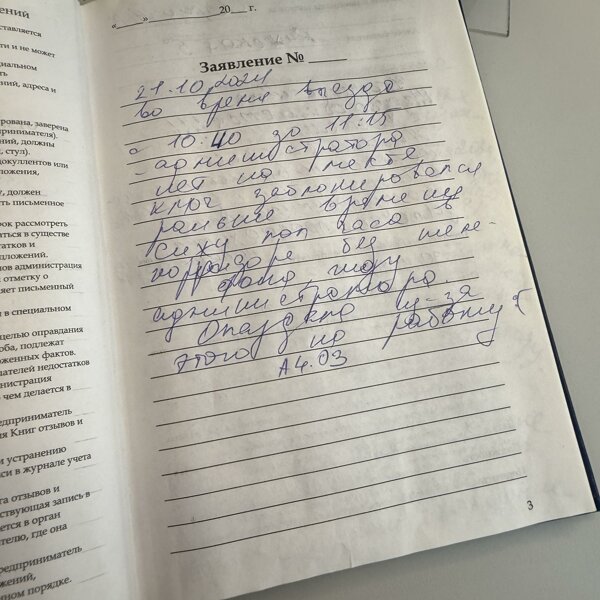 ений
ставляется
ти и не может
циальном
ть
ений, адреса и
рована, заверена
принимателя).
ений, должны
, стул).
докуллентов или
ложения,
у, должен
ть письменное
рок рассмотреть
аться в существе
татков и
дложений.
нов администрация
 отметку о
яет письменный
и в специальном
целью оправдания
оба, подлежат
оженных фактов.
ателей недостатков
нистрация
 чем делается в
едприниматель
ия Книг отзывов и
и устранению
си в журнале учета
га отзывов и
ствующая запись в
ется в орган
телю, где она
едприниматель
жений,
ном порядке.
«____» ____________ 20___ г.
Заявление № ____
21.10.2024
во время выезда
с 10.40 до 11:15
администратора
нет на месте
ключ заблокировался
раньше времени
сижу пол часа в
корридоре без теле-
фона, жду
администратора.
Опаздаю из-за
этого на работу
А4.03
3